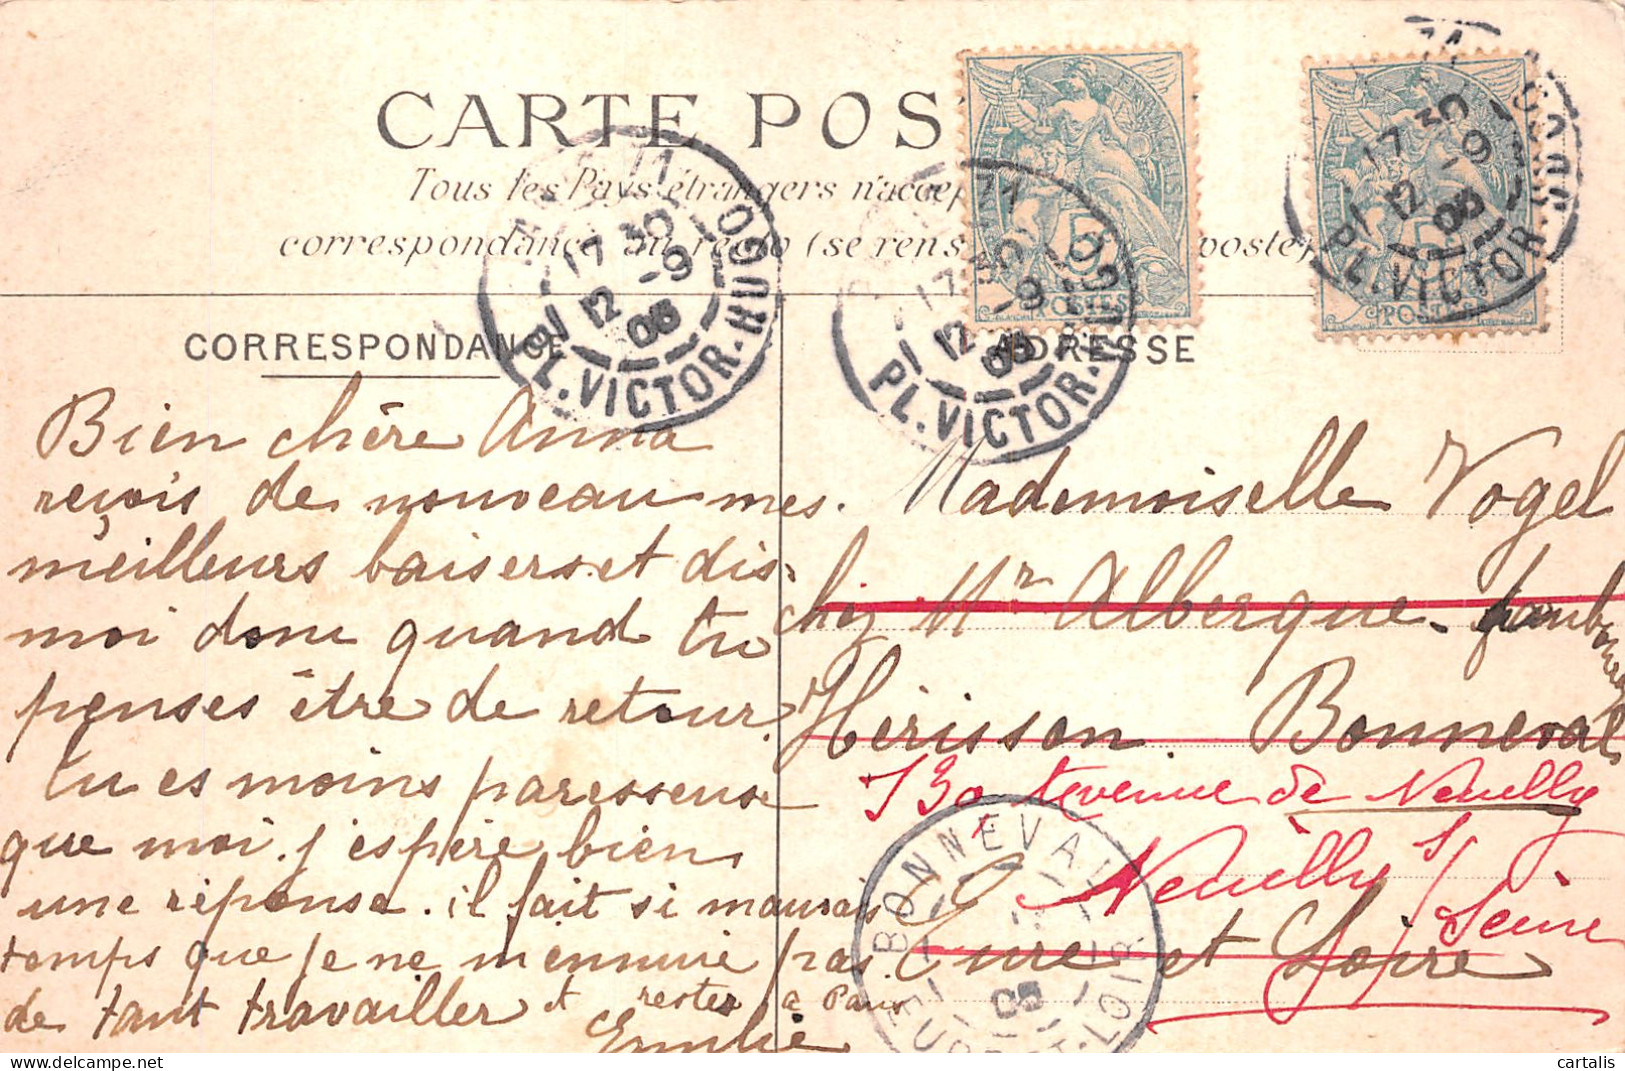 CARTE POS
Tous les Pays étrangers n'accep
correspondance au recto (se rens poste)
CORRESPONDANCE
ADRESSE
PL. VICTOR-HUGO
17 30
12 -9
06
PL. VICTOR-HUGO
17 30
12 -9
06
PL. VICTOR-HUGO
17 30
12 -9
06
5
POSTES
5
POSTES
Bien chère Anna
reçois de nouveau mes
meilleurs baisers et dis-
moi donc quand tu
penses être de retour.
tu es moins paresseuse
que moi. j'espère bien
une réponse. il fait si mauvais
temps que je ne m'ennuie pas
de tant travailler et rester à Paris
Emilie
Mademoiselle Vogel
chez Mr Albergue faubourg
Hérisson Bonneval
Eure et Loire
130 Avenue de Neuilly
Neuilly s/ Seine
BONNEVAL
EURE-ET-LOIR
cartalis